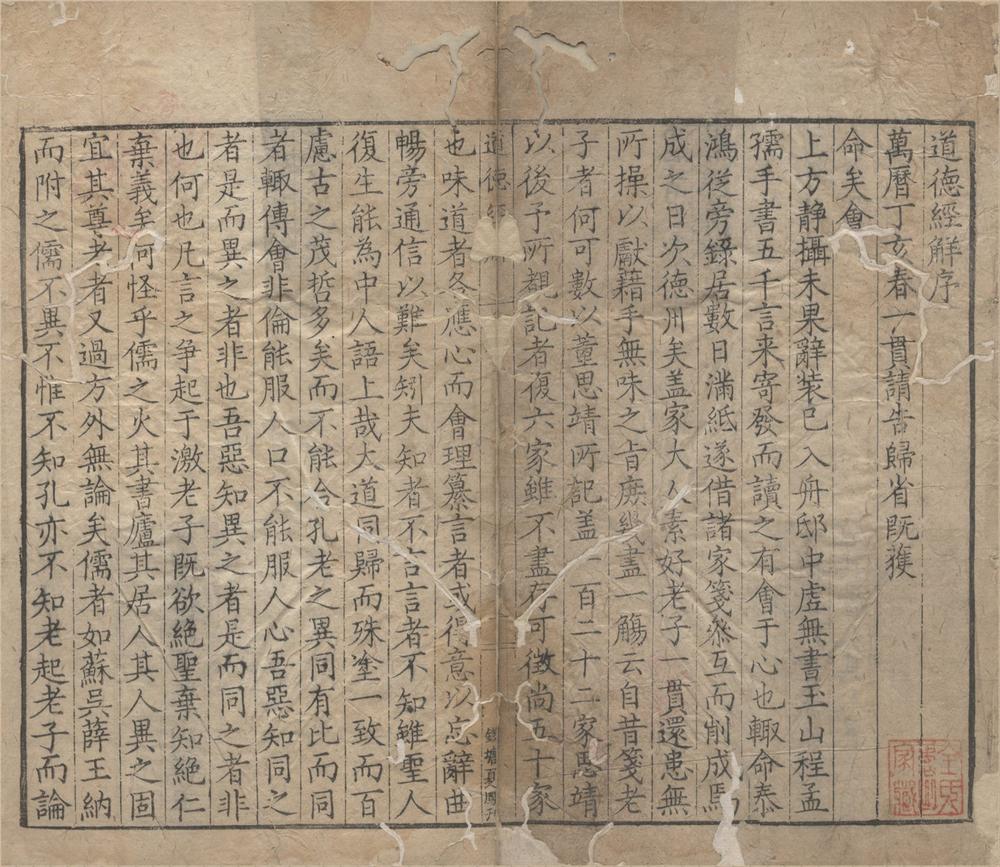 道德經解序
萬曆丁亥春一貫請告歸省既獲
命矣會
上方静攝未果辭装已入舟邸中虚無書玉山程孟
孺手書五千言来寄發而讀之有會于心也輙命泰
鴻從旁錄居數日滿紙遂借諸家箋叅互而削成焉
成之日次德州矣盖家大人素好老子一貫還患無
所操以獻藉手無味之旨庶幾盡一觴云自昔箋老
子者何可數以董思靖所記盖一百二十二家思靖
以後予所覩記者復六家雖不盡存可徵尚五十家
道德經
錢塘夏
也味道者冬應心而會理纂言者或得意以忘辭曲
暢旁通信以難矣矧夫知者不言言者不知雖聖人
復生能為中人語上哉大道同歸而殊塗一致而百
慮古之茂哲多矣而不能合孔老之異同有比而同
者輙傳會非倫能服人口不能服人心吾惡知同之
者是而異之者非也吾惡知異之者是而同之者非
也何也凡言之争起于激老子既欲絶聖棄知絶仁
棄義矣何怪乎儒之火其書廬其居人其人異之固
宜其尊老者又過方外無論矣儒者如蘇吳薛王納
而附之儒不異不惟不知孔亦不知老起老子而論